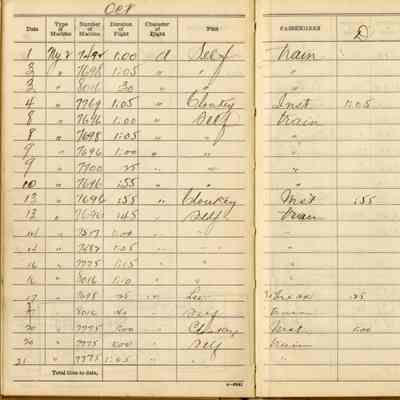 Oct
Date Type of Machine Number of Machine Duration of Flight Character of Flight Pilot PASSENGERS D
1 1.00 d Self Train
3 " 7698 1:05 " " "
3 " 8016 " " "
4 " 7769 1.05 " Cloukey Inst 1:05
8 " 7696 1:00 " Self Train
8 " 7698 1:05 " " "
9 " 7696 1:00 " " "
9 " 7700 25 " " "
10 " 7696 :55 " " "
13 " 7696 :55 " Cloukey Inst :55
13 " 7696 :45 " Self Train
14 " " " "
14 " 1:05 " " "
16 " 7775 1:15 " " "
16 " 8016 1:10 " " "
17 " 7698 :25 " :25
" 8016 " Self Train
20 " 7775 1:00 " Cloukey Inst 1:00
20 " 7775 " Self Train
21 " 7775 1:05 " " "
Total time to date,